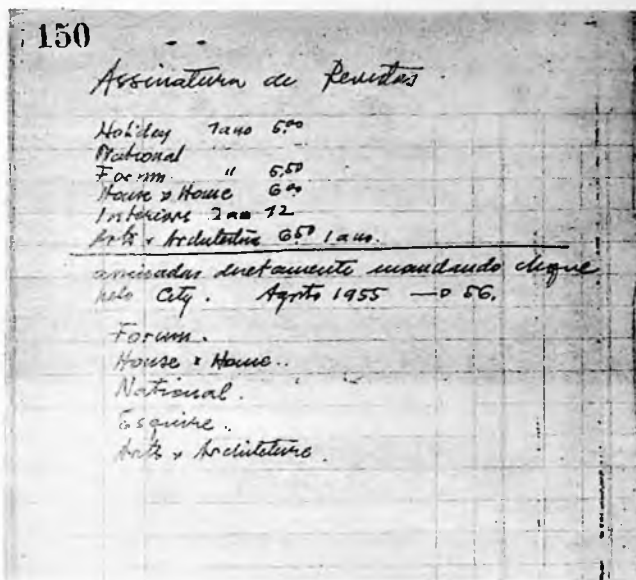 150
Assinatura de Revistas
Holiday 1 ano 5.00
National
Forum " 5,50
House & Home 6.00
Interiors 2 an 12
Arts & Architecture 6.50 1 ano.
assinadas diretamente mandando cheque
pelo City. Agosto 1955 → 56.
Forum.
House & Home..
National.
Esquire.
Arts & Architeture.